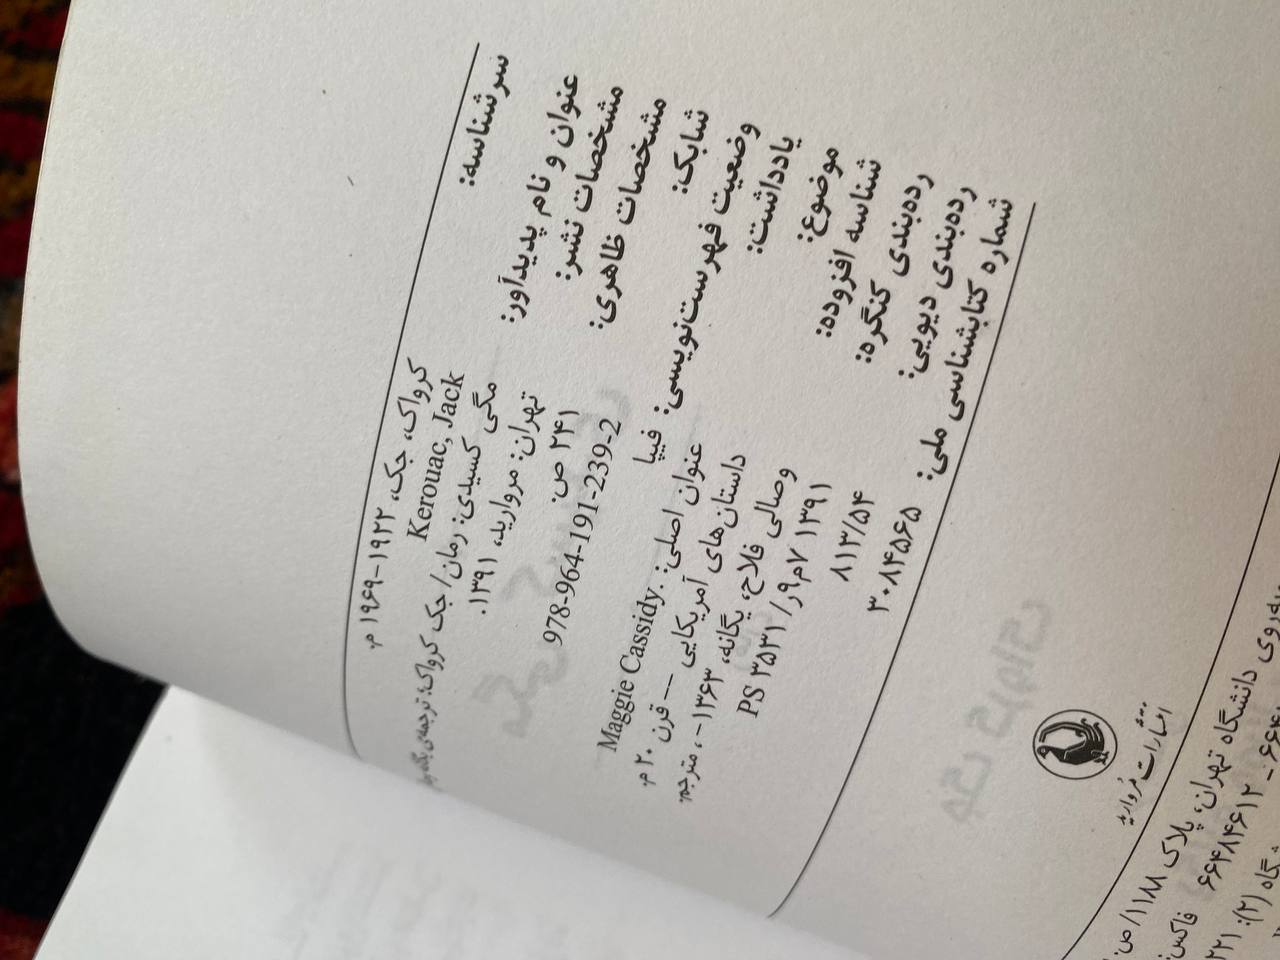 سرشناسه: کرواک، جک، ۱۹۲۲-۱۹۶۹ م.
Kerouac, Jack
عنوان و نام پدیدآور: مگی کسیدی: رمان/ جک کرواک؛ ترجمه‌ی یگانه
مشخصات نشر: تهران: مروارید، ۱۳۹۱.
مشخصات ظاهری: ۲۴۱ ص.
شابک: 978-964-191-239-2
وضعیت فهرست‌نویسی: فیپا
یادداشت: عنوان اصلی: Maggie Cassidy.
موضوع: داستان‌های آمریکایی — قرن ۲۰ م.
شناسه افزوده: وصالی فلاح، یگانه، ۱۳۶۳- ، مترجم.
رده‌بندی کنگره: PS ۳۵۳۱/ر۹م۷ ۱۳۹۱
رده‌بندی دیویی: ۸۱۳/۵۴
شماره کتابشناسی ملی: ۳۰۸۴۵۶۵
انتشارات مروارید
روی دانشگاه تهران، پلاک ۱۱۸۸/ ص.
۶۶۴۸۴۶۱۲ فاکس: